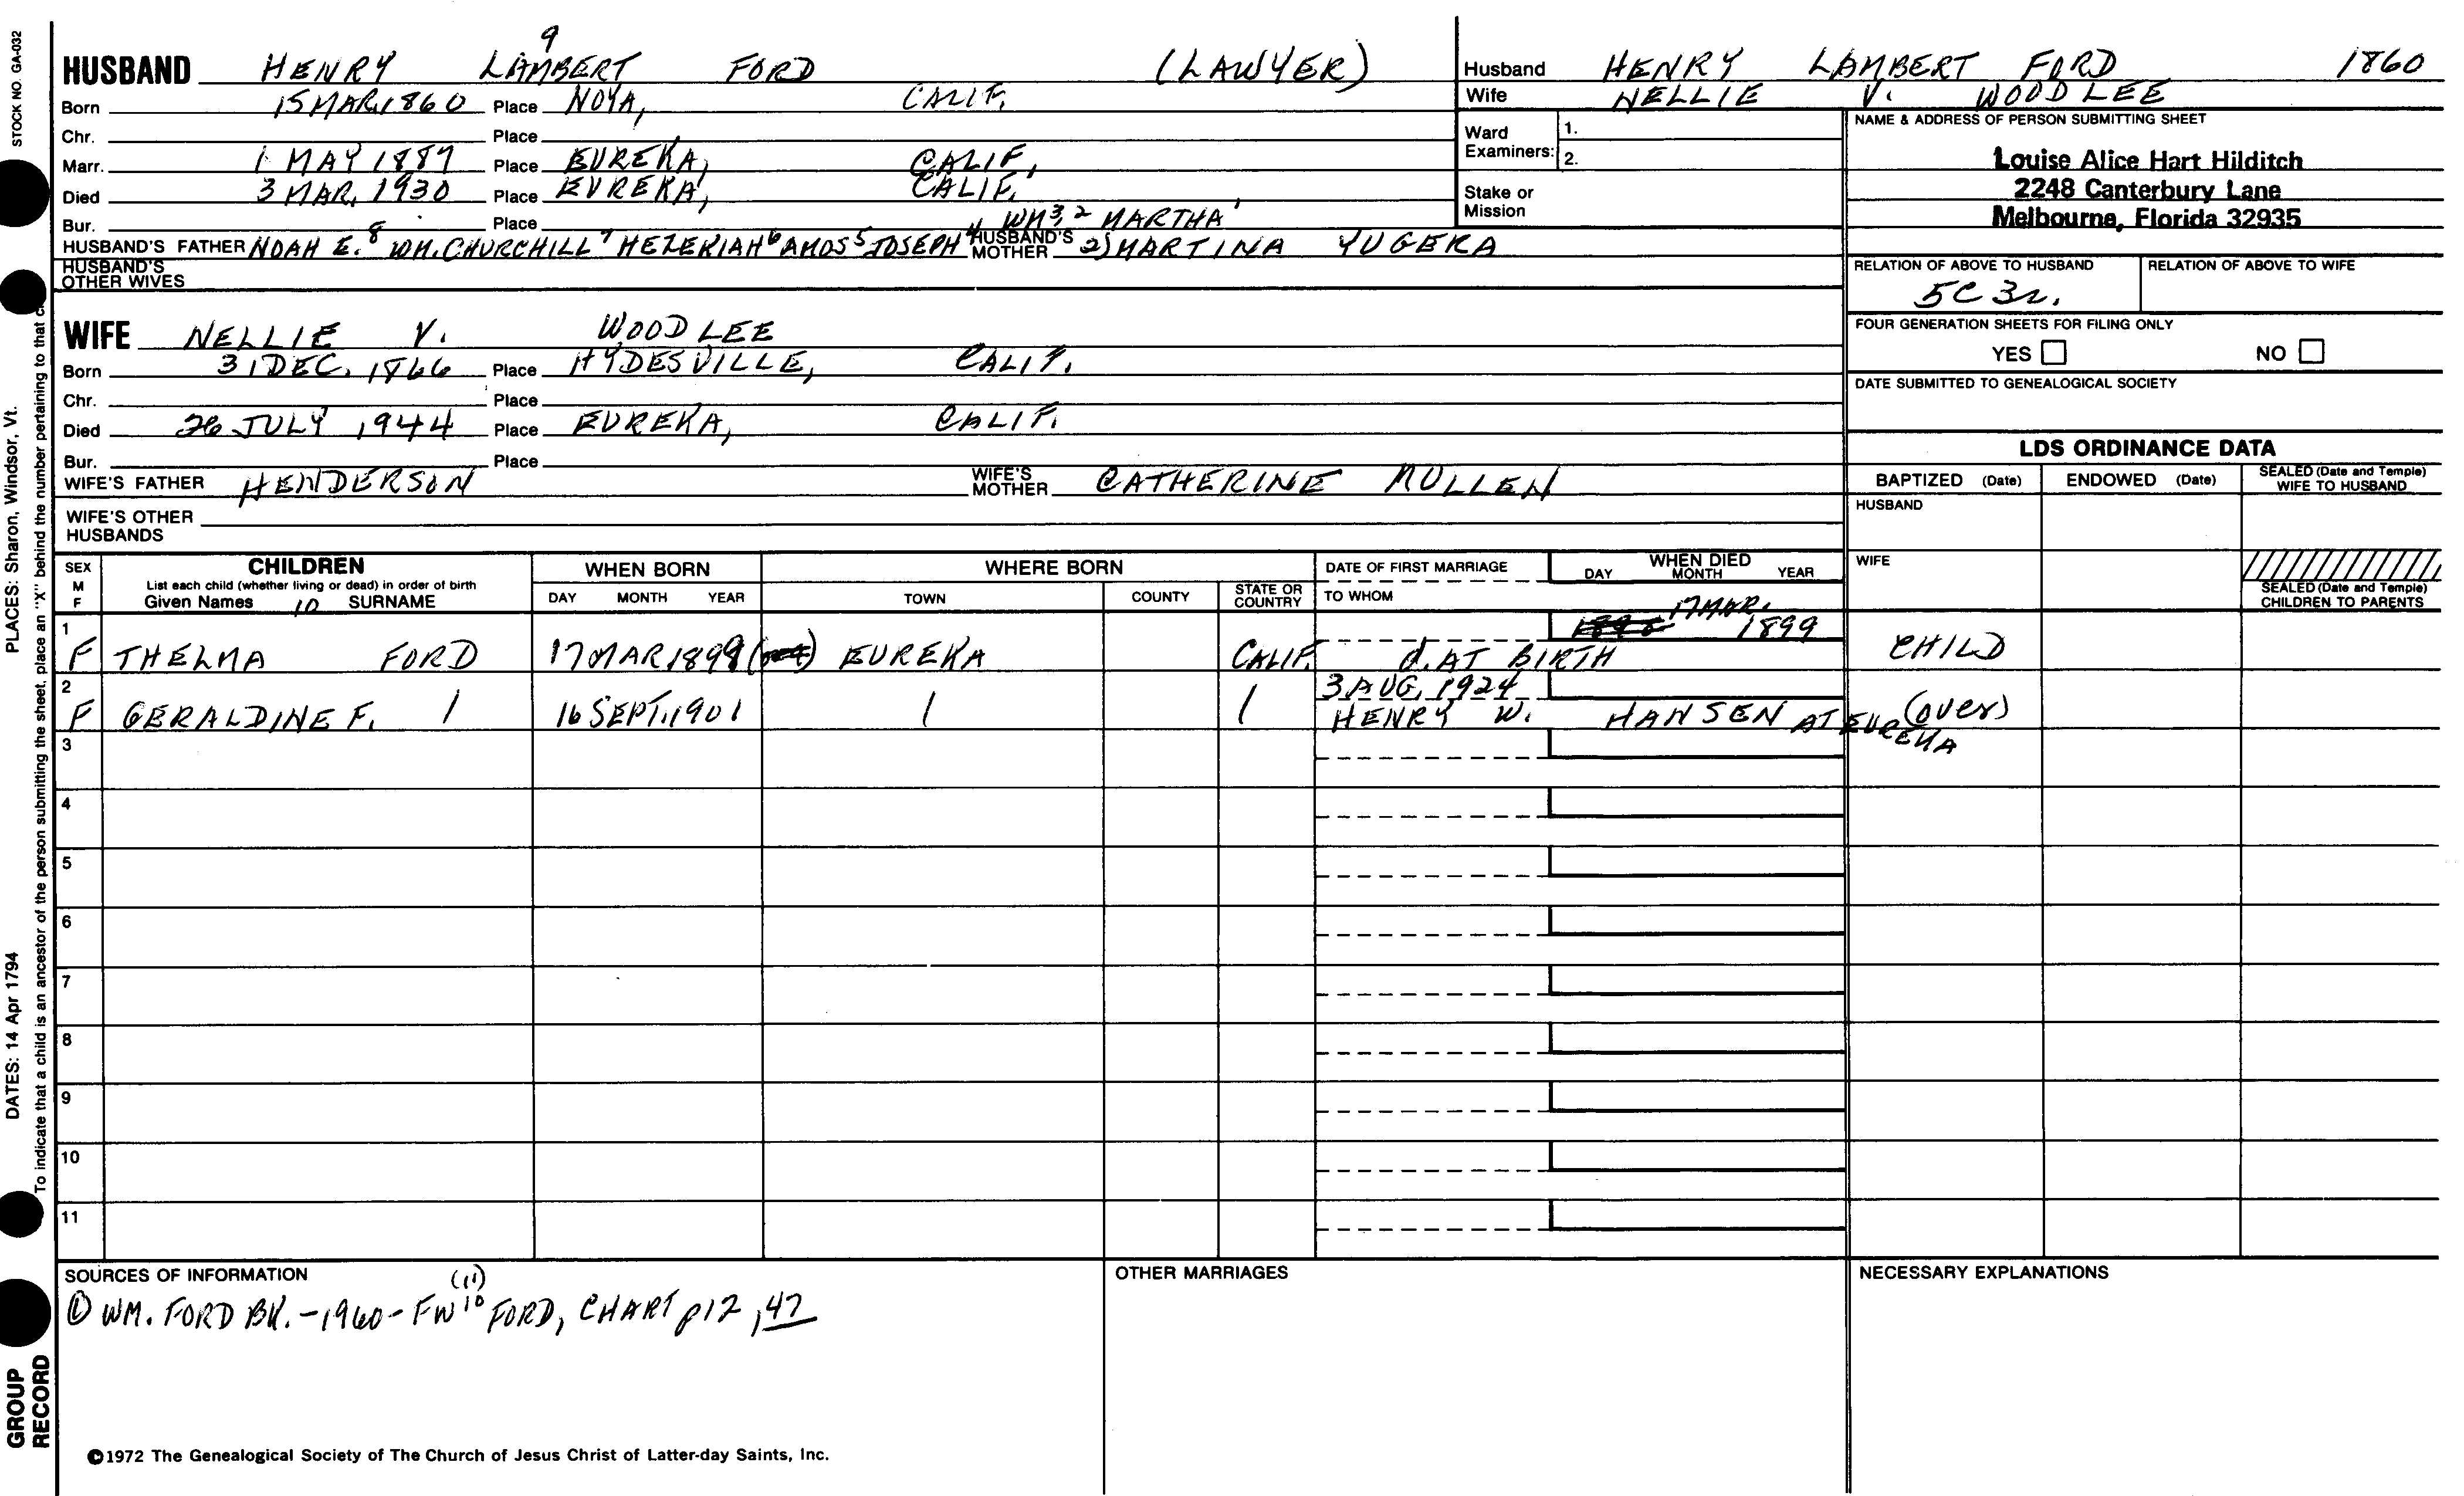 STOCK NO. GA-032
PLACES: Sharon, Windsor, Vt.
DATES: 14 Apr 1794
To indicate that a child is an ancestor of the person submitting the sheet, place an "X" behind the number pertaining to that c
GROUP
RECORD
9
HUSBAND HENRY LAMBERT FORD (LAWYER)
Born 15 MAR. 1860 Place NOYA, CALIF.
Chr. Place
Marr. 1 MAY 1889 Place EUREKA, CALIF,
Died 3 MAR, 1930 Place EUREKA, CALIF.
Bur. Place 4 WM3, 2 MARTHA 1
HUSBAND'S FATHER NOAH E.8 WM. CHURCHILL7 HEZEKIAH6 AMOS5 JOSEPH HUSBAND'S MOTHER 2) MARTINA YUGERA
HUSBAND'S
OTHER WIVES
WIFE NELLIE V. WOODLEE
Born 31 DEC. 1866 Place HYDESVILLE, CALIF.
Chr. Place
Died 26 JULY 1944 Place EUREKA, CALIF.
Bur. Place
WIFE'S FATHER HENDERSON WIFE'S MOTHER CATHERINE MULLEN
WIFE'S OTHER
HUSBANDS
Husband HENRY LAMBERT FORD 1860
Wife NELLIE V. WOODLEE
Ward
Examiners:
1.
2.
Stake or
Mission
NAME & ADDRESS OF PERSON SUBMITTING SHEET
Louise Alice Hart Hilditch
2248 Canterbury Lane
Melbourne, Florida 32935
RELATION OF ABOVE TO HUSBAND RELATION OF ABOVE TO WIFE
5C 3r.
FOUR GENERATION SHEETS FOR FILING ONLY
YES NO
DATE SUBMITTED TO GENEALOGICAL SOCIETY
LDS ORDINANCE DATA
BAPTIZED (Date) ENDOWED (Date) SEALED (Date and Temple) WIFE TO HUSBAND
HUSBAND
WIFE
SEALED (Date and Temple)
CHILDREN TO PARENTS
SEX
M
F
CHILDREN
List each child (whether living or dead) in order of birth
Given Names 10 SURNAME
WHEN BORN
DAY MONTH YEAR
WHERE BORN
TOWN COUNTY STATE OR COUNTRY
DATE OF FIRST MARRIAGE
TO WHOM
WHEN DIED
DAY MONTH YEAR
17 MAR.
1899
1
F THELMA FORD 17 MAR 1899 EUREKA CALIF. d. AT BIRTH CHILD
2
3 AUG. 1924
F GERALDINE F. / 16 SEPT. 1901 / / HENRY W. HANSEN AT EUREKA (over)
3
4
5
6
7
8
9
10
11
SOURCES OF INFORMATION
(11)
① WM. FORD BK. -1960- FW10 FORD, CHART p12, 47
OTHER MARRIAGES
NECESSARY EXPLANATIONS
©1972 The Genealogical Society of The Church of Jesus Christ of Latter-day Saints, Inc.